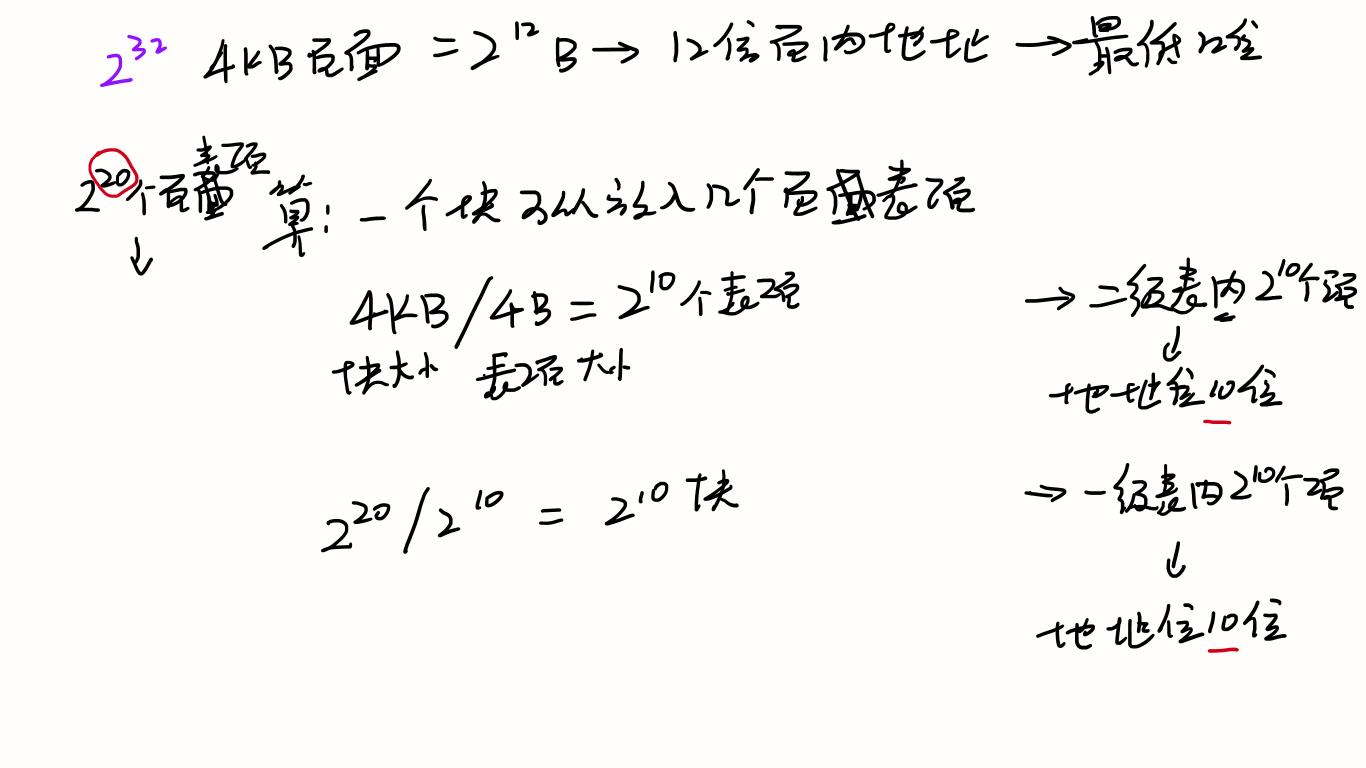 2^32 4KB页面 = 2^12 B → 12位页内地址 → 最低12位
表项
2^20个页面 算: 一个块可以放入几个页面表项
↓
4KB / 4B = 2^10个表项 → 二级表内2^10个项
块大小 表项大小 ↓
地址位10位
2^20 / 2^10 = 2^10块 → 一级表内2^10个项
↓
地址位10位